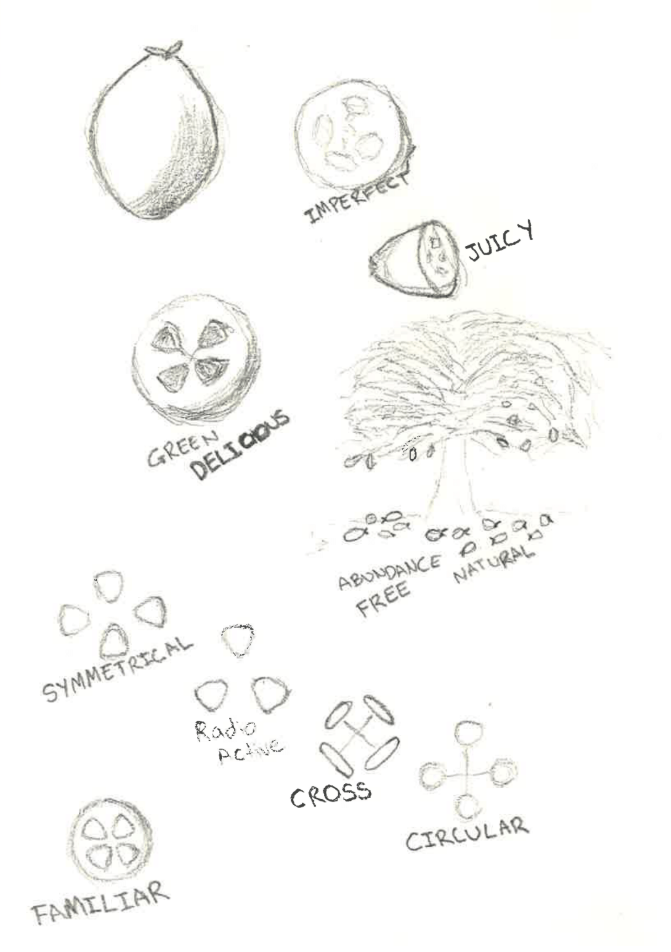 IMPERFECT
JUICY
GREEN
DELICIOUS
ABUNDANCE
FREE
NATURAL
SYMMETRICAL
Radio
Active
CROSS
CIRCULAR
FAMILIAR